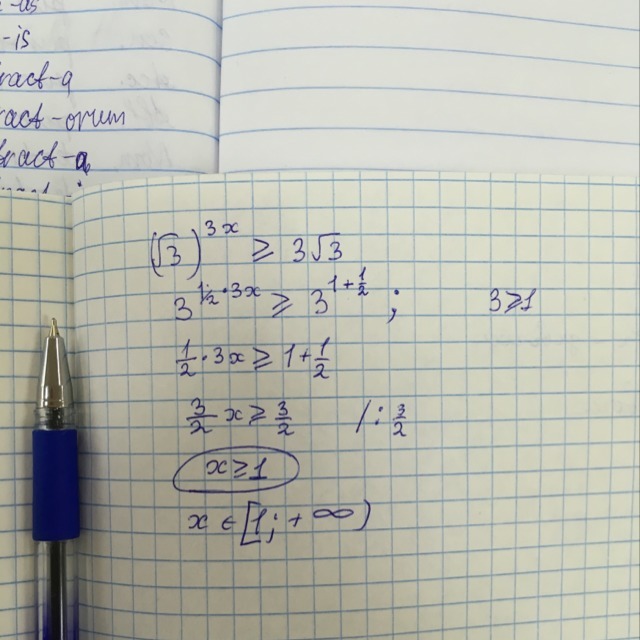 -is
ract-a
ract-orum
fract-a
(√3)^{3x} ≥ 3√3
3^{1/2·3x} ≥ 3^{1+1/2} ; 3≥1
1/2·3x ≥ 1+1/2
3/2 x ≥ 3/2 /: 3/2
x≥1
x ∈ [1; +∞)